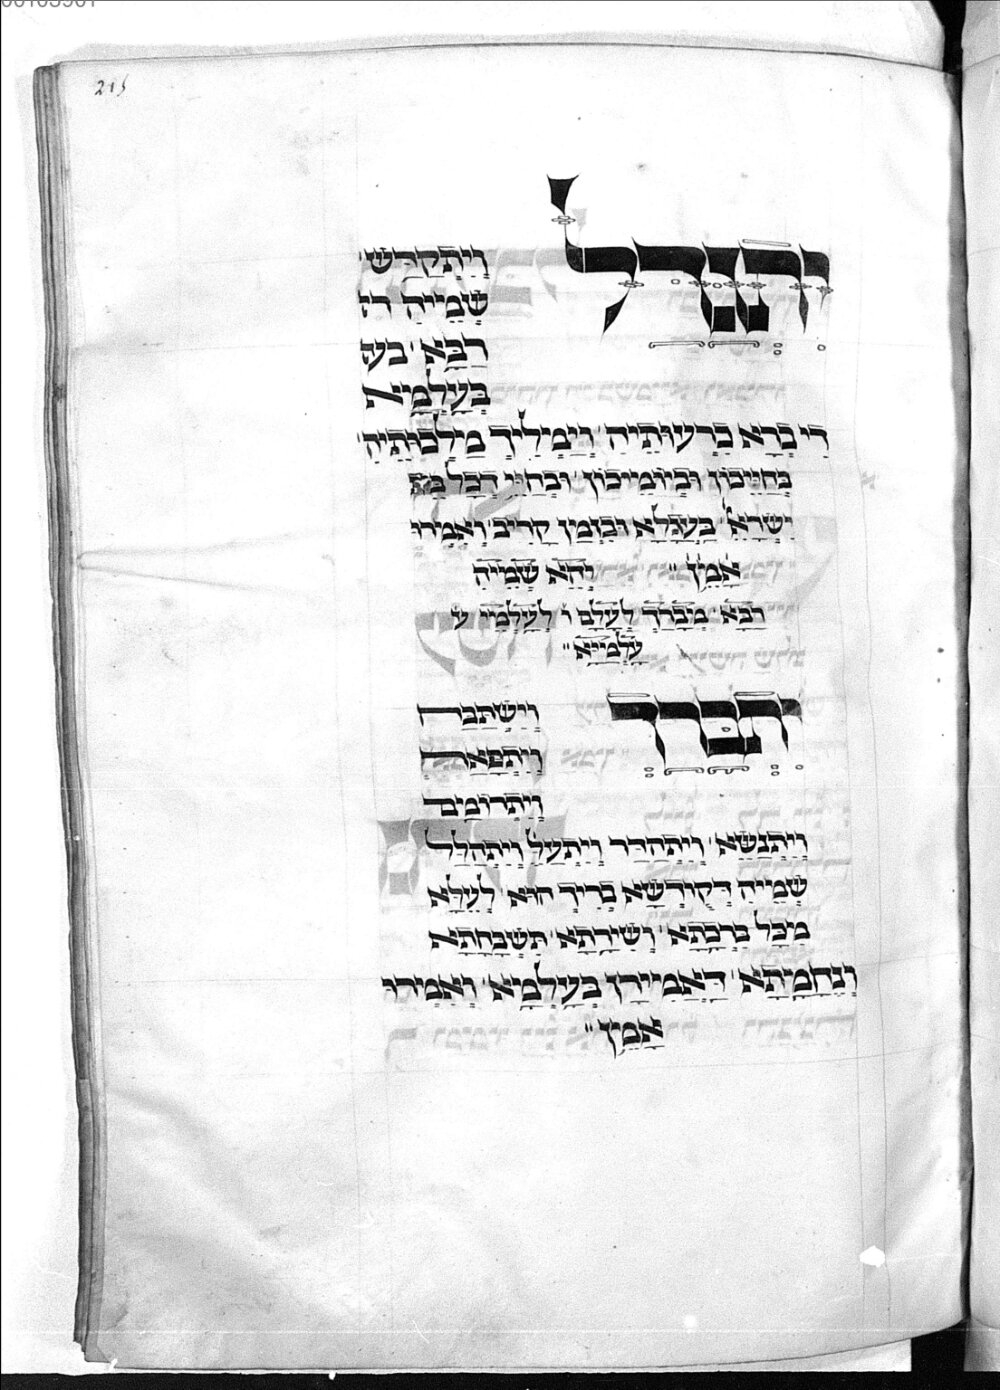 215
יתגדל
וְיִתְקַדַּשׁ
שְׁמֵיהּ
רַבָּא בעה
בְּעָלְמָא
דִי בְרָא כִרְעוּתֵיהּ וְיַמְלִיךְ מַלְכוּתֵיהּ
בְּחַיֵּיכוֹן וּבְיוֹמֵיכוֹן וּבְחַיֵּי דְכָל בֵּא
יִשְׂרָאֵל בַּעֲגָלָא וּבִזְמַן קָרִיב וְאִמְרוּ
אָמֵן יְהֵא שְׁמֵיהּ
רַבָּא מְבָרַךְ לְעָלַם ו לְעָלְמֵי ע
עָלְמַיָּא
יתברך
וְיִשְׁתַּבַּח
וְיִתְפָּאַר
וְיִתְרוֹמֵם
וְיִתְנַשֵּׂא וְיִתְהַדַּר וְיִתְעַלֶּ וְיִתְהַלַּל
שְׁמֵיהּ דְּקוּדְשָׁא בְּרִיךְ הוּא לְעֵלָּא
מִכָּל בִּרְכָתָא וְשִׁירָתָא תֻּשְׁבְּחָתָא
וְנֶחֱמָתָא דַּאֲמִירָן בְּעָלְמָא וְאִמְרוּ
אָמֵן